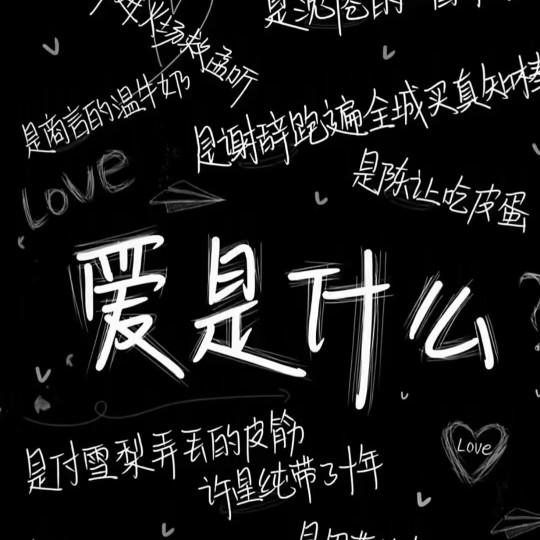 是商言的温牛奶
是谢辞跑遍全城买真知棒
Love
是陈让吃皮蛋
爱是什么
是付雪梨弄丢的皮筋
许星纯带了十年
Love